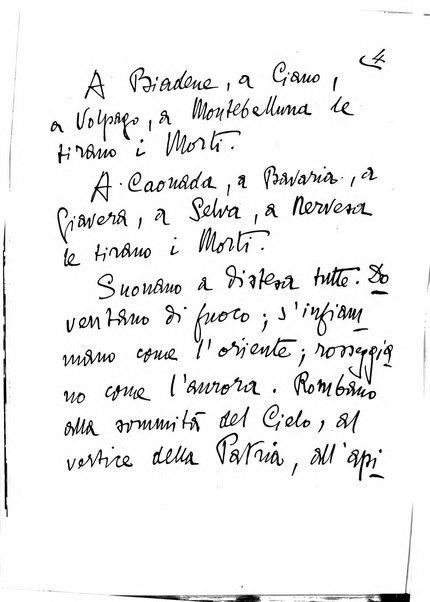 4
A Biadene, a Ciano,
a Volpago, a Montebelluna le
tirano i Morti.
A Caonada, a Bavaria, a
Giavera, a Selva, a Nervesa
le tirano i Morti.
Suonano a distesa tutte. Do
ventano di fuoco; s'infiam
mano come l'oriente; rosseggia
no come l'aurora. Rombano
alla sommità del Cielo, al
vertice della Patria, all'api